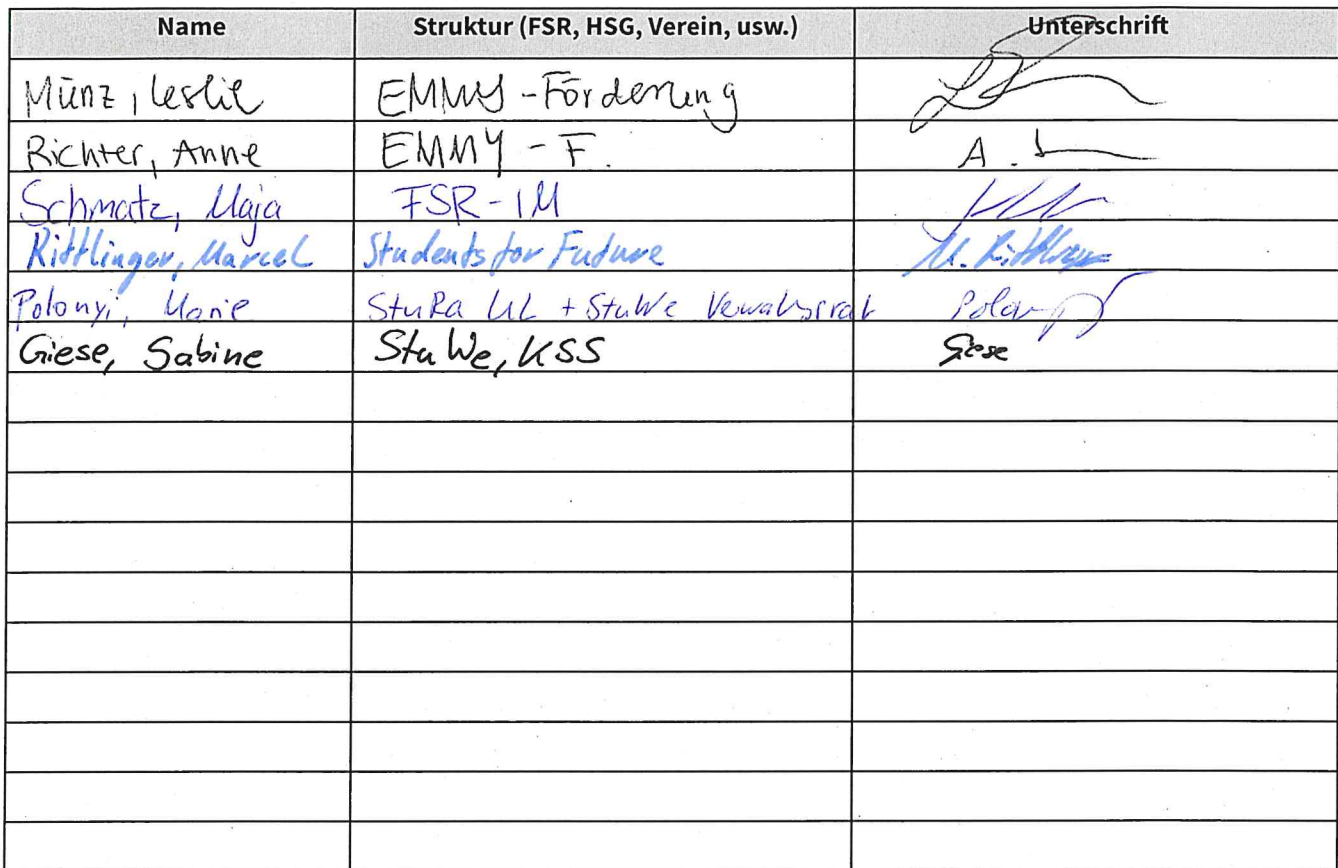 Name Struktur (FSR, HSG, Verein, usw.) Unterschrift
Münz, Leslie EMMY-Förderung
Richter, Anne EMMY - F. A.
Schmatz, Maja FSR-IM
Rittlinger, Marcel Students for Future M. Rittlinger
Polonyi, Marie StuRa UL + StuWe Verwaltungsrat
Giese, Sabine StuWe, KSS Giese